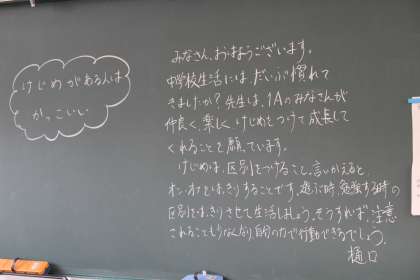 けじめがある人は
かっこいい
みなさん、おはようございます。
中学校生活には、だいぶ慣れて
きましたか？先生は、1Aのみなさんが
仲良く、楽しく、けじめをつけて成長して
くれることを願っています。
けじめは、区別をつけること。言いかえると
オン・オフをはっきりすることです。遊ぶ時、勉強する時の
区別をはっきりさせて生活しましょう。そうすれば、注意
されることも少なくなり、自分の力で行動できるでしょう。
樋口